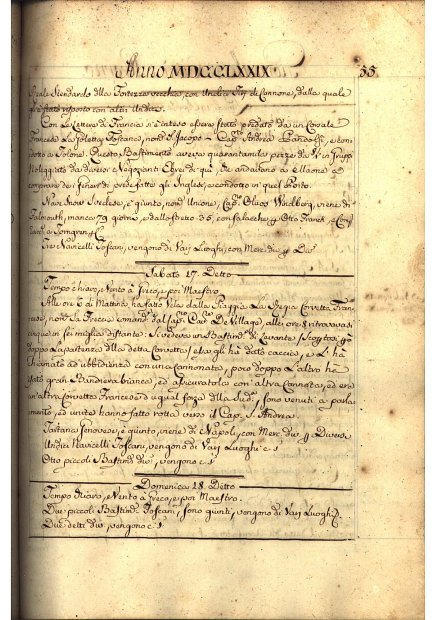 Anno MDCCLXXIX
55.
Reale Stendardo della Fortezza vecchia, con Undici Tiri di Cannone, dalla quale
è stato risposto con altri Undici.
Con Lettere di Francia s'è inteso essere stato predato da un Corsale
Francese La Poletta Toscana, nom.ta S. Jacopo Cap. Andrea, e
dotto a Tolone. Questo Bastimento aveva quarantamila pezze da in Gruppi
Noleggiato da diversi Negozianti Ebrei di qui, che andavano a
comprare dei generi di prede fatte dagli Inglesi, e condotti in quel Porto.
Nave Svezzese, è giunto, nom. Unione, Cap. Olaus, viene di
Falmouth, manca 79 giorni, e dallo stretto 35, con Salacche, p. Otto Franck, e
Tre Navicelli Toscani, vengono di Varj Luoghi, con Merc. div. p. Div.
Sabato 27. Detto
Tempo chiaro, Vento à Greco, e poi Maestro.
Alle ore 6 di Mattina, ha fatto Vela dalla Piaggia La Regia Corvetta Fran-
cese, nom. La comand. dal Cap. De Village, alle ore 8 ritrovavasi
in sei miglia distante: Si vedeva un Bastim. di Levante,
doppo La partenza della detta Corvetta, ed egli ha dato caccia, e L'ha
chiamato ad ubbidienza con una Cannonata, poco doppo L'altro ha
Bandiera bianca, ed assicuratola con altra Cannonata, ed era
un'altra Corvetta Francese d'ugual forza della Sud., sono venuti a parla-
mento, ed unite hanno fatto rotta verso il Cap. S. Andrea.
Tartana Genovese, è giunta, viene di Napoli, con Merc. div. p. Diversi
Undici Navicelli Toscani, vengono di Varj Luoghi c. s.
Otto piccoli Bastim. div. vengono c. s.
Domenica 28. Detto
Tempo chiaro, e Vento à Greco, e poi Maestro.
Due piccoli Bastim. Toscani, sono giunti, vengono di Varj Luoghi
Due detti div. vengono c. s.